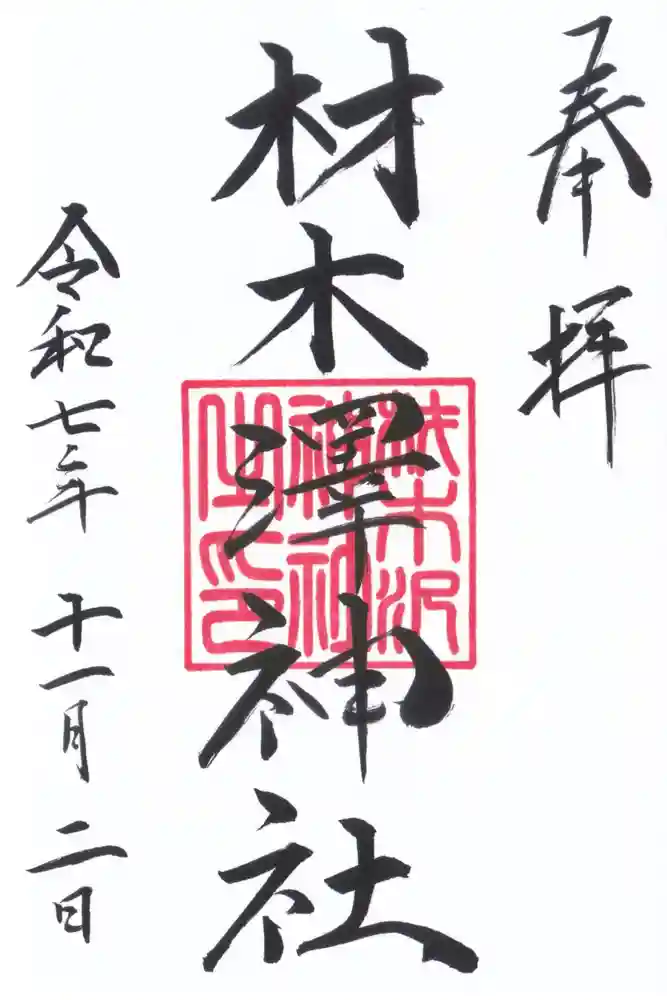 奉拝
材木澤神社
材木沢
神社
之印
令和七年十一月二日